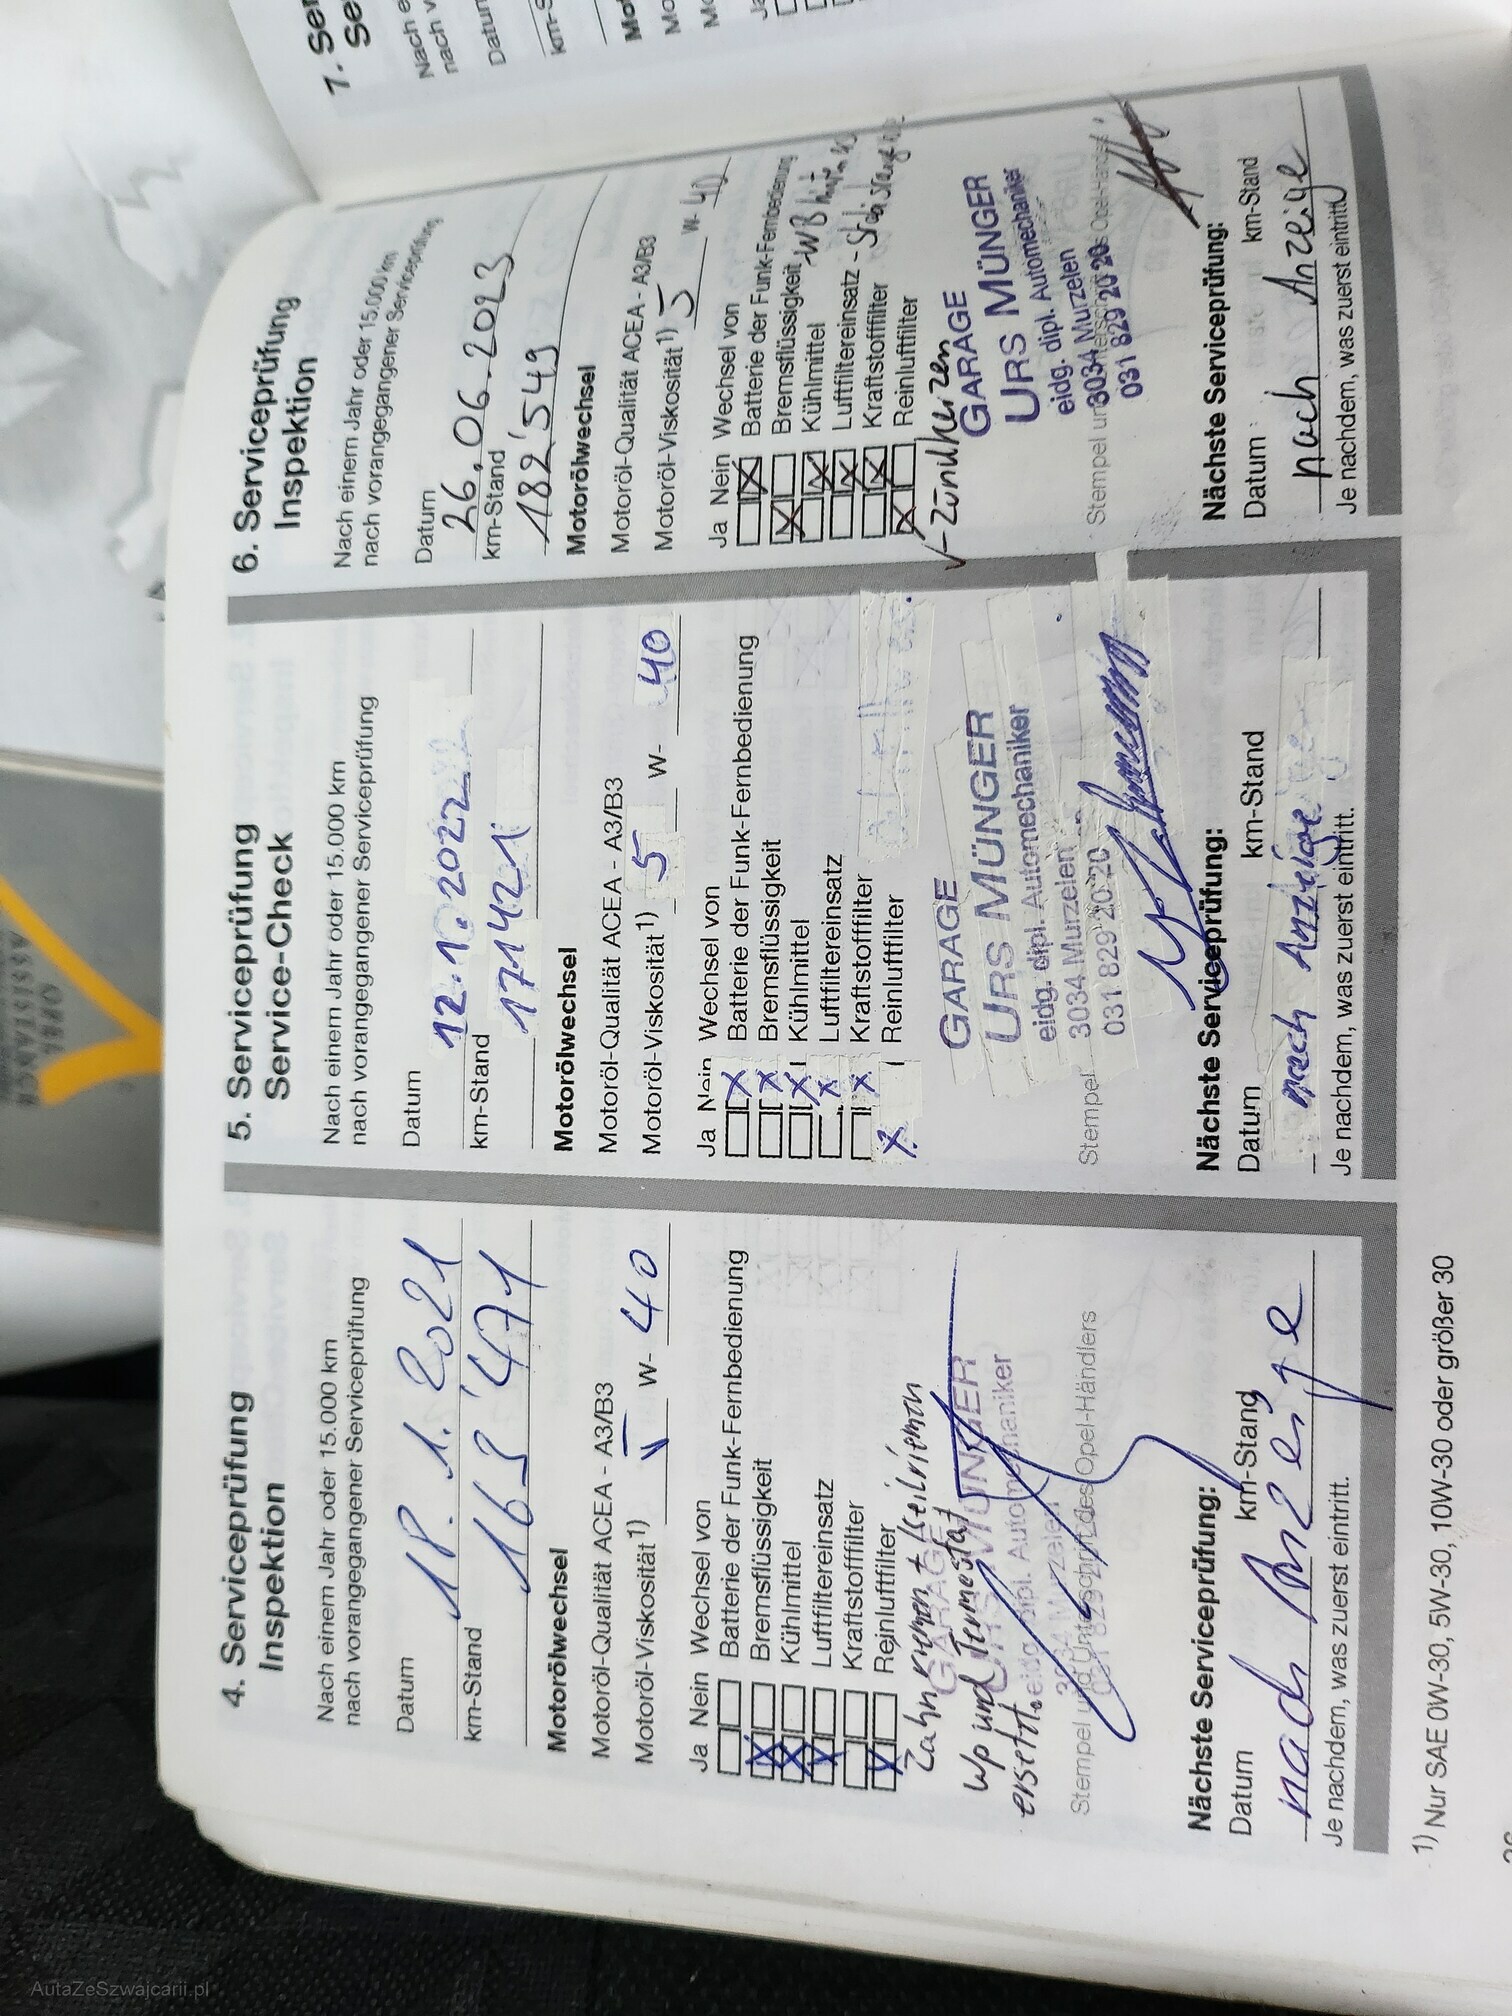 4. Serviceprüfung
Inspektion
Nach einem Jahr oder 15.000 km
nach vorangegangener Serviceprüfung
Datum
18. 1. 2021
km-Stand
163'471
Motorölwechsel
Motoröl-Qualität ACEA - A3/B3
Motoröl-Viskosität 1) 5 W- 40
Ja Nein Wechsel von
Batterie der Funk-Fernbedienung
Bremsflüssigkeit
Kühlmittel
Luftfiltereinsatz
Kraftstofffilter
Reinluftfilter
Zahnriemen + Keilriemen
wp und Termostat
ersetzt.
GARAGE
URS MÜNGER
eidg. dipl. Automechaniker
3034 Murzelen
Stempel und Unterschrift des Opel-Händlers
Nächste Serviceprüfung:
Datum km-Stand
nach Anzeige
Je nachdem, was zuerst eintritt.
5. Serviceprüfung
Service-Check
Nach einem Jahr oder 15.000 km
nach vorangegangener Serviceprüfung
Datum
12.1.2022
km-Stand
171421
Motorölwechsel
Motoröl-Qualität ACEA - A3/B3
Motoröl-Viskosität 1) 5 W- 40
Ja Nein Wechsel von
Batterie der Funk-Fernbedienung
Bremsflüssigkeit
Kühlmittel
Luftfiltereinsatz
Kraftstofffilter
Reinluftfilter
GARAGE
URS MÜNGER
eidg. dipl. Automechaniker
3034 Murzelen
031 829 20 20
Stempel
Nächste Serviceprüfung:
Datum km-Stand
nach Anzeige
Je nachdem, was zuerst eintritt.
6. Serviceprüfung
Inspektion
Nach einem Jahr oder 15.000 km
nach vorangegangener Serviceprüfung
Datum
26.06.2023
km-Stand
182'549
Motorölwechsel
Motoröl-Qualität ACEA - A3/B3
Motoröl-Viskosität 1) 5 W- 40
Ja Nein Wechsel von
Batterie der Funk-Fernbedienung
Bremsflüssigkeit
Kühlmittel
Luftfiltereinsatz
Kraftstofffilter
Reinluftfilter
- Zündkerzen
GARAGE
URS MÜNGER
eidg. dipl. Automechaniker
3034 Murzelen
031 829 20 20
Nächste Serviceprüfung:
Datum km-Stand
nach Anzeige
Je nachdem, was zuerst eintritt.
1) Nur SAE 0W-30, 5W-30, 10W-30 oder größer 30
7.
Nach
nach
Datum
OPEL
ASSISTANCE
AutaZeSzwajcarii.pl